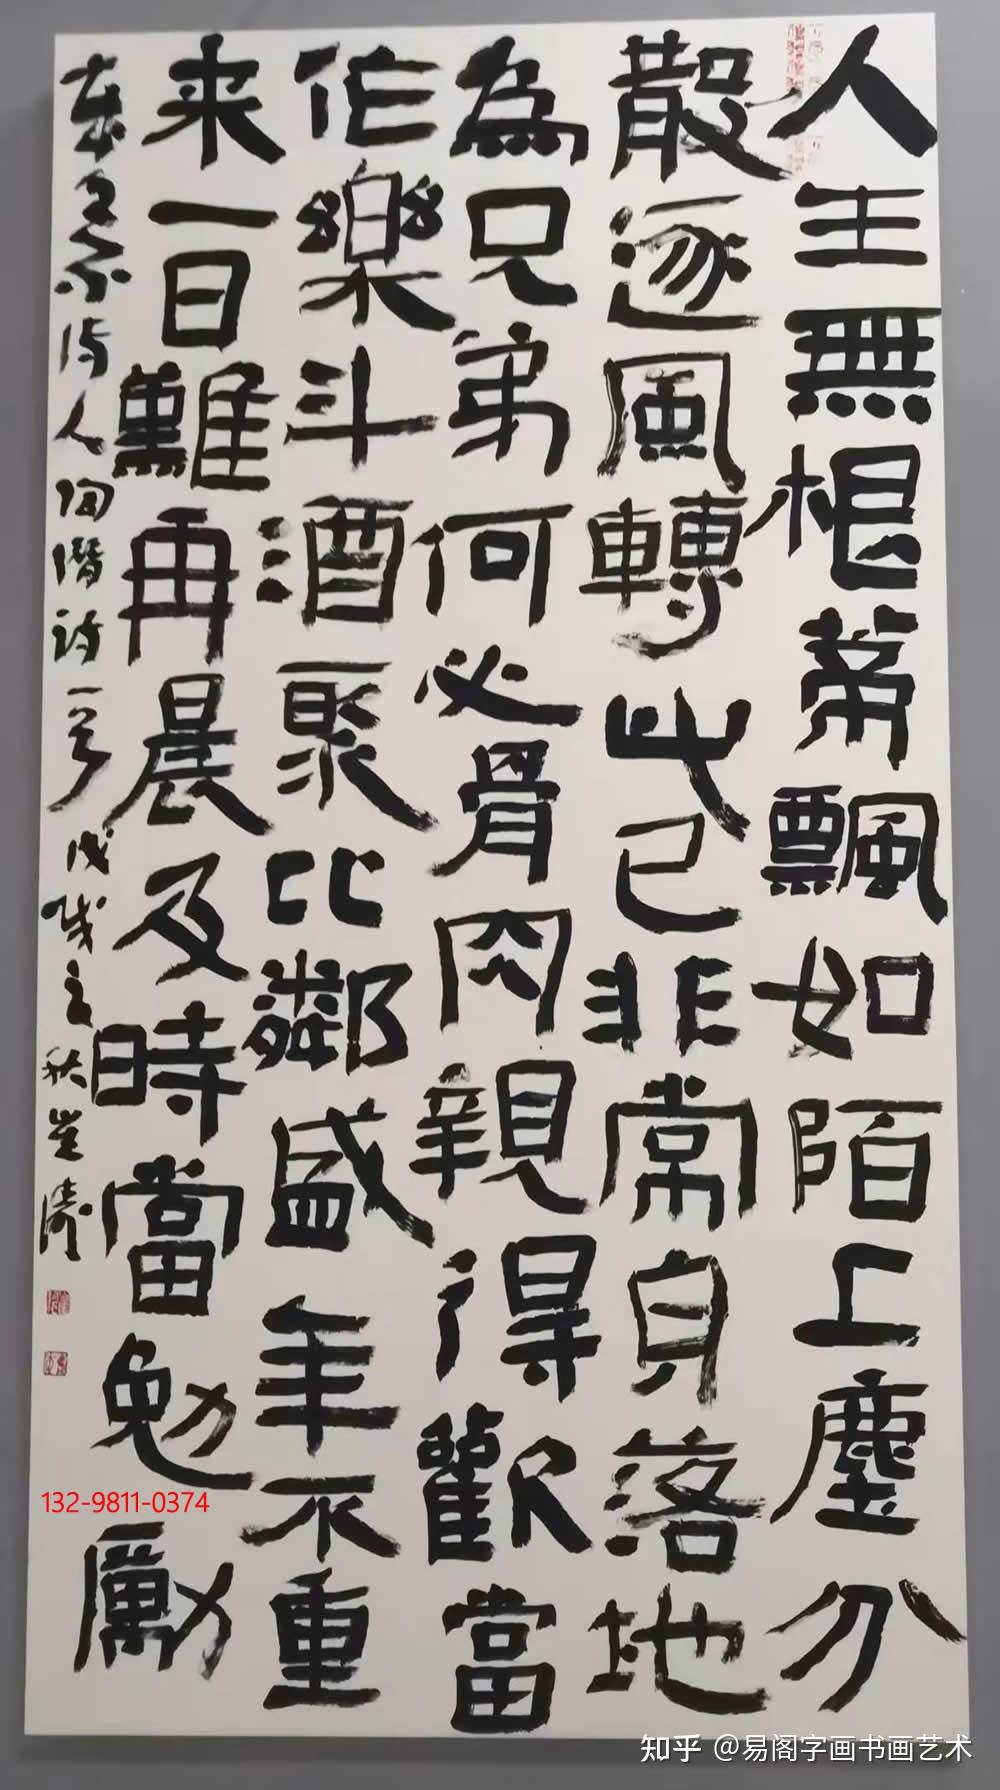 人生無根蒂飄如陌上塵分
散逐風轉此已非常身落地
為兄弟何必骨肉親得歡當
作樂斗酒聚比鄰盛年不重
来一日難再晨及時當勉勵
诗人陶潛诗一首戊戌立秋崔濤
132-9811-0374
知乎 @易阁字画书画艺术